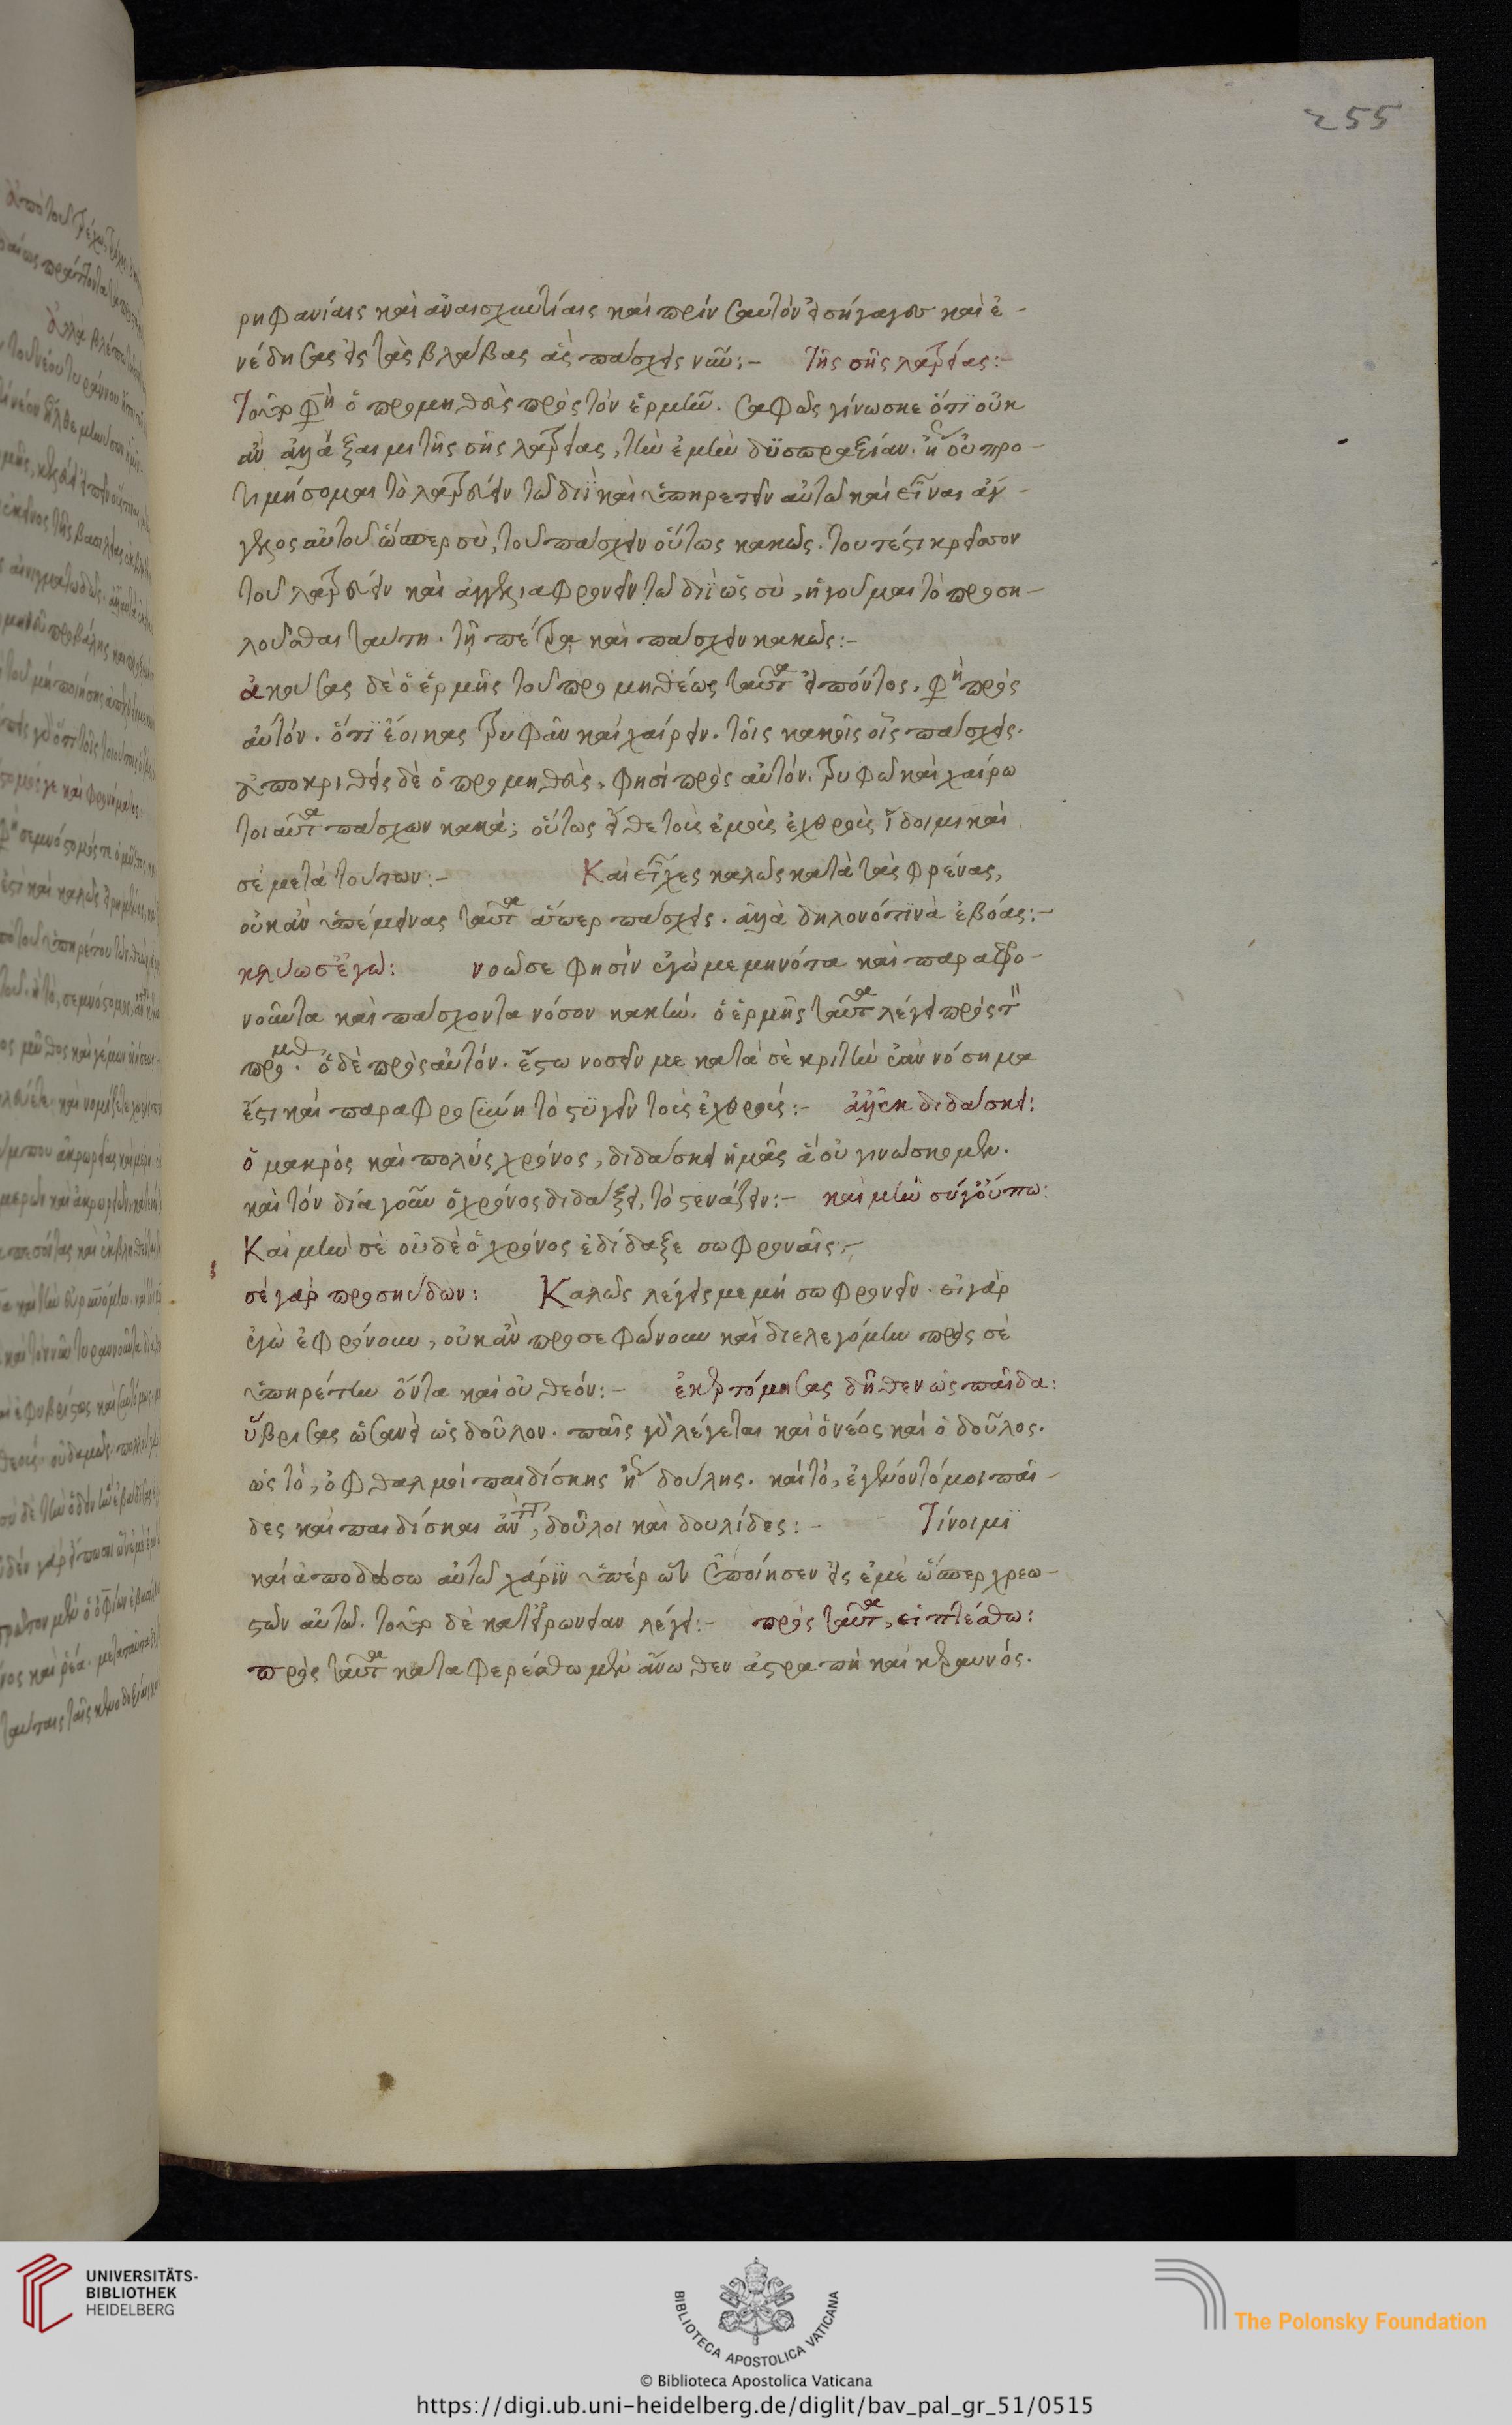 255
ρηφανίαις καὶ ἀναισχυντίαις καὶ πρὶν σαυτὸν εἰσήγαγες καὶ ἐ-
νέδησας εἰς τὰς βλάβας ἃς πάσχεις νῦν:- τῆς σῆς λατρείας:-
φη ὁ προμηθεὺς πρὸς τὸν ἑρμῆν. σαφῶς γίνωσκε ὅτι οὐκ
ἂν ἀλλάξαιμι τῆς σῆς λατρείας, τὴν ἐμὴν δυσπραξίαν. ἢ οὐ προ-
τιμήσομαι τὸ λατρεύειν τῶ διῒ καὶ ὑπηρετεῖν αὐτῶ καὶ εἶναι ἄγ-
γελος αὐτοῦ ὥσπερ σὺ, τοῦ πάσχειν οὕτως κακῶς. τουτέστι κρεῖσσον
τοῦ λατρεύειν καὶ ἀγγελιαφρονεῖν τῶ διῒ ὡς σὺ, ἡγοῦμαι τὸ προση-
λοῦσθαι ταύτη. τῆ πέτρα καὶ πάσχειν κακῶς:-
ἀκούσας δὲ ὁ ἑρμῆς τοῦ προμηθέως ταῦτα εἰπόντος. φη πρὸς
αὐτόν. ὅτι ἔοικας τρυφᾶν καὶ χαίρειν. τοῖς κακοῖς οἷς πάσχεις.
ἀποκριθεὶς δὲ ὁ προμηθεὺς. φησὶ πρὸς αὐτόν. τρυφῶ καὶ χαίρω
τοιαῦτα πάσχων κακά; οὕτως εἴθε τοὺς ἐμοὺς ἐχθροὺς ἴδοιμι καὶ
σὲ μετὰ τούτων:- Καὶ εἶχες καλῶς κατὰ τὰς φρένας,
οὐκ ἂν ὑπέμεινας ταῦτα ἅπερ πάσχεις. ἀλλὰ δηλονότι νὰ ἐβόας:-
κλύω σ' ἐγώ: νοῶ σε φησὶν ἐγὼ μεμηνότα καὶ παραφρο-
νοῦντα καὶ πάσχοντα νόσον κακήν. ὁ ἑρμῆς ταῦτα λέγει πρὸς τ
προμθ. ὁ δὲ πρὸς αὐτόν. ἔστω νοσεῖν με κατὰ σὲ κριτὴν ἐὰν νόσημα
ἐστὶ καὶ παραφροσύνη τὸ στυγεῖν τοὺς ἐχθροὺς:- ἀλλ' ἐκδιδάσκει:
ὁ μακρὸς καὶ πολὺς χρόνος, διδάσκει ἡμᾶς ἃ οὐ γινώσκομεν.
καὶ τὸν δία γοῦν ὁ χρόνος διδάξει, τὸ στενάζειν:- καὶ μὴν σύγ' οὔπω:
Καὶ μὴν σὲ οὐδὲ ὁ χρόνος ἐδίδαξε σωφρονεῖν:-
σὲ γὰρ προσηύδων: Καλῶς λέγεις με μὴ σωφρονεῖν. εἰ γὰρ
ἐγὼ ἐφρόνουν, οὐκ ἂν προσεφώνουν καὶ διελεγόμην πρὸς σὲ
ὑπηρέτην ὄντα καὶ οὐ θεόν:- ἐκερτόμησας δῆθεν ὡς παῖδα:
ὕβρισας ὡσανεὶ ὡς δοῦλον. παῖς γὰρ λέγεται καὶ ὁ νέος καὶ ὁ δοῦλος.
ὡς τὸ, ὀφθαλμοὶ παιδίσκης ἢ δούλης. καὶ τὸ, ἐγένοντό μοι παῖ-
δες καὶ παιδίσκαι ἀντ, δοῦλοι καὶ δουλίδες:- Τίνοιμι
καὶ ἀποδώσω αὐτῶ χάριν ὑπὲρ ὧν ἐποίησεν εἰς ἐμὲ ὥσπερ χρεω-
στῶν αὐτῶ. δὲ κατ' εἰρωνείαν λέγει:- πρὸς ταῦτα, ῥιπτέσθω:
πρὸς ταῦτα καταφερέσθω μὲν ἄνωθεν ἀστραπὴ καὶ κεραυνός.
UNIVERSITÄTS-
BIBLIOTHEK
HEIDELBERG
BIBLIOTECA APOSTOLICA VATICANA
The Polonsky Foundation
© Biblioteca Apostolica Vaticana
https://digi.ub.uni-heidelberg.de/diglit/bav_pal_gr_51/0515